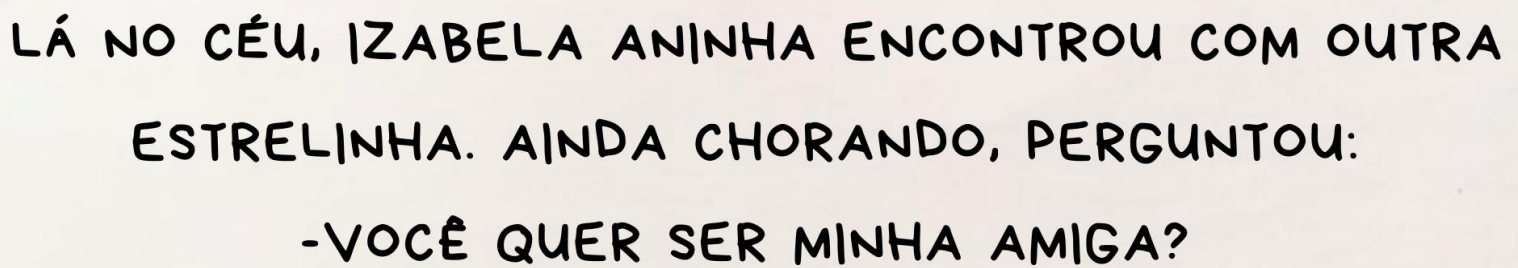 LÁ NO CÉU, IZABELA ANINHA ENCONTROU COM OUTRA
ESTRELINHA. AINDA CHORANDO, PERGUNTOU:
-VOCÊ QUER SER MINHA AMIGA?